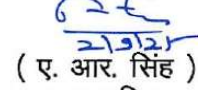 2/9/25
( ए. आर. सिंह )